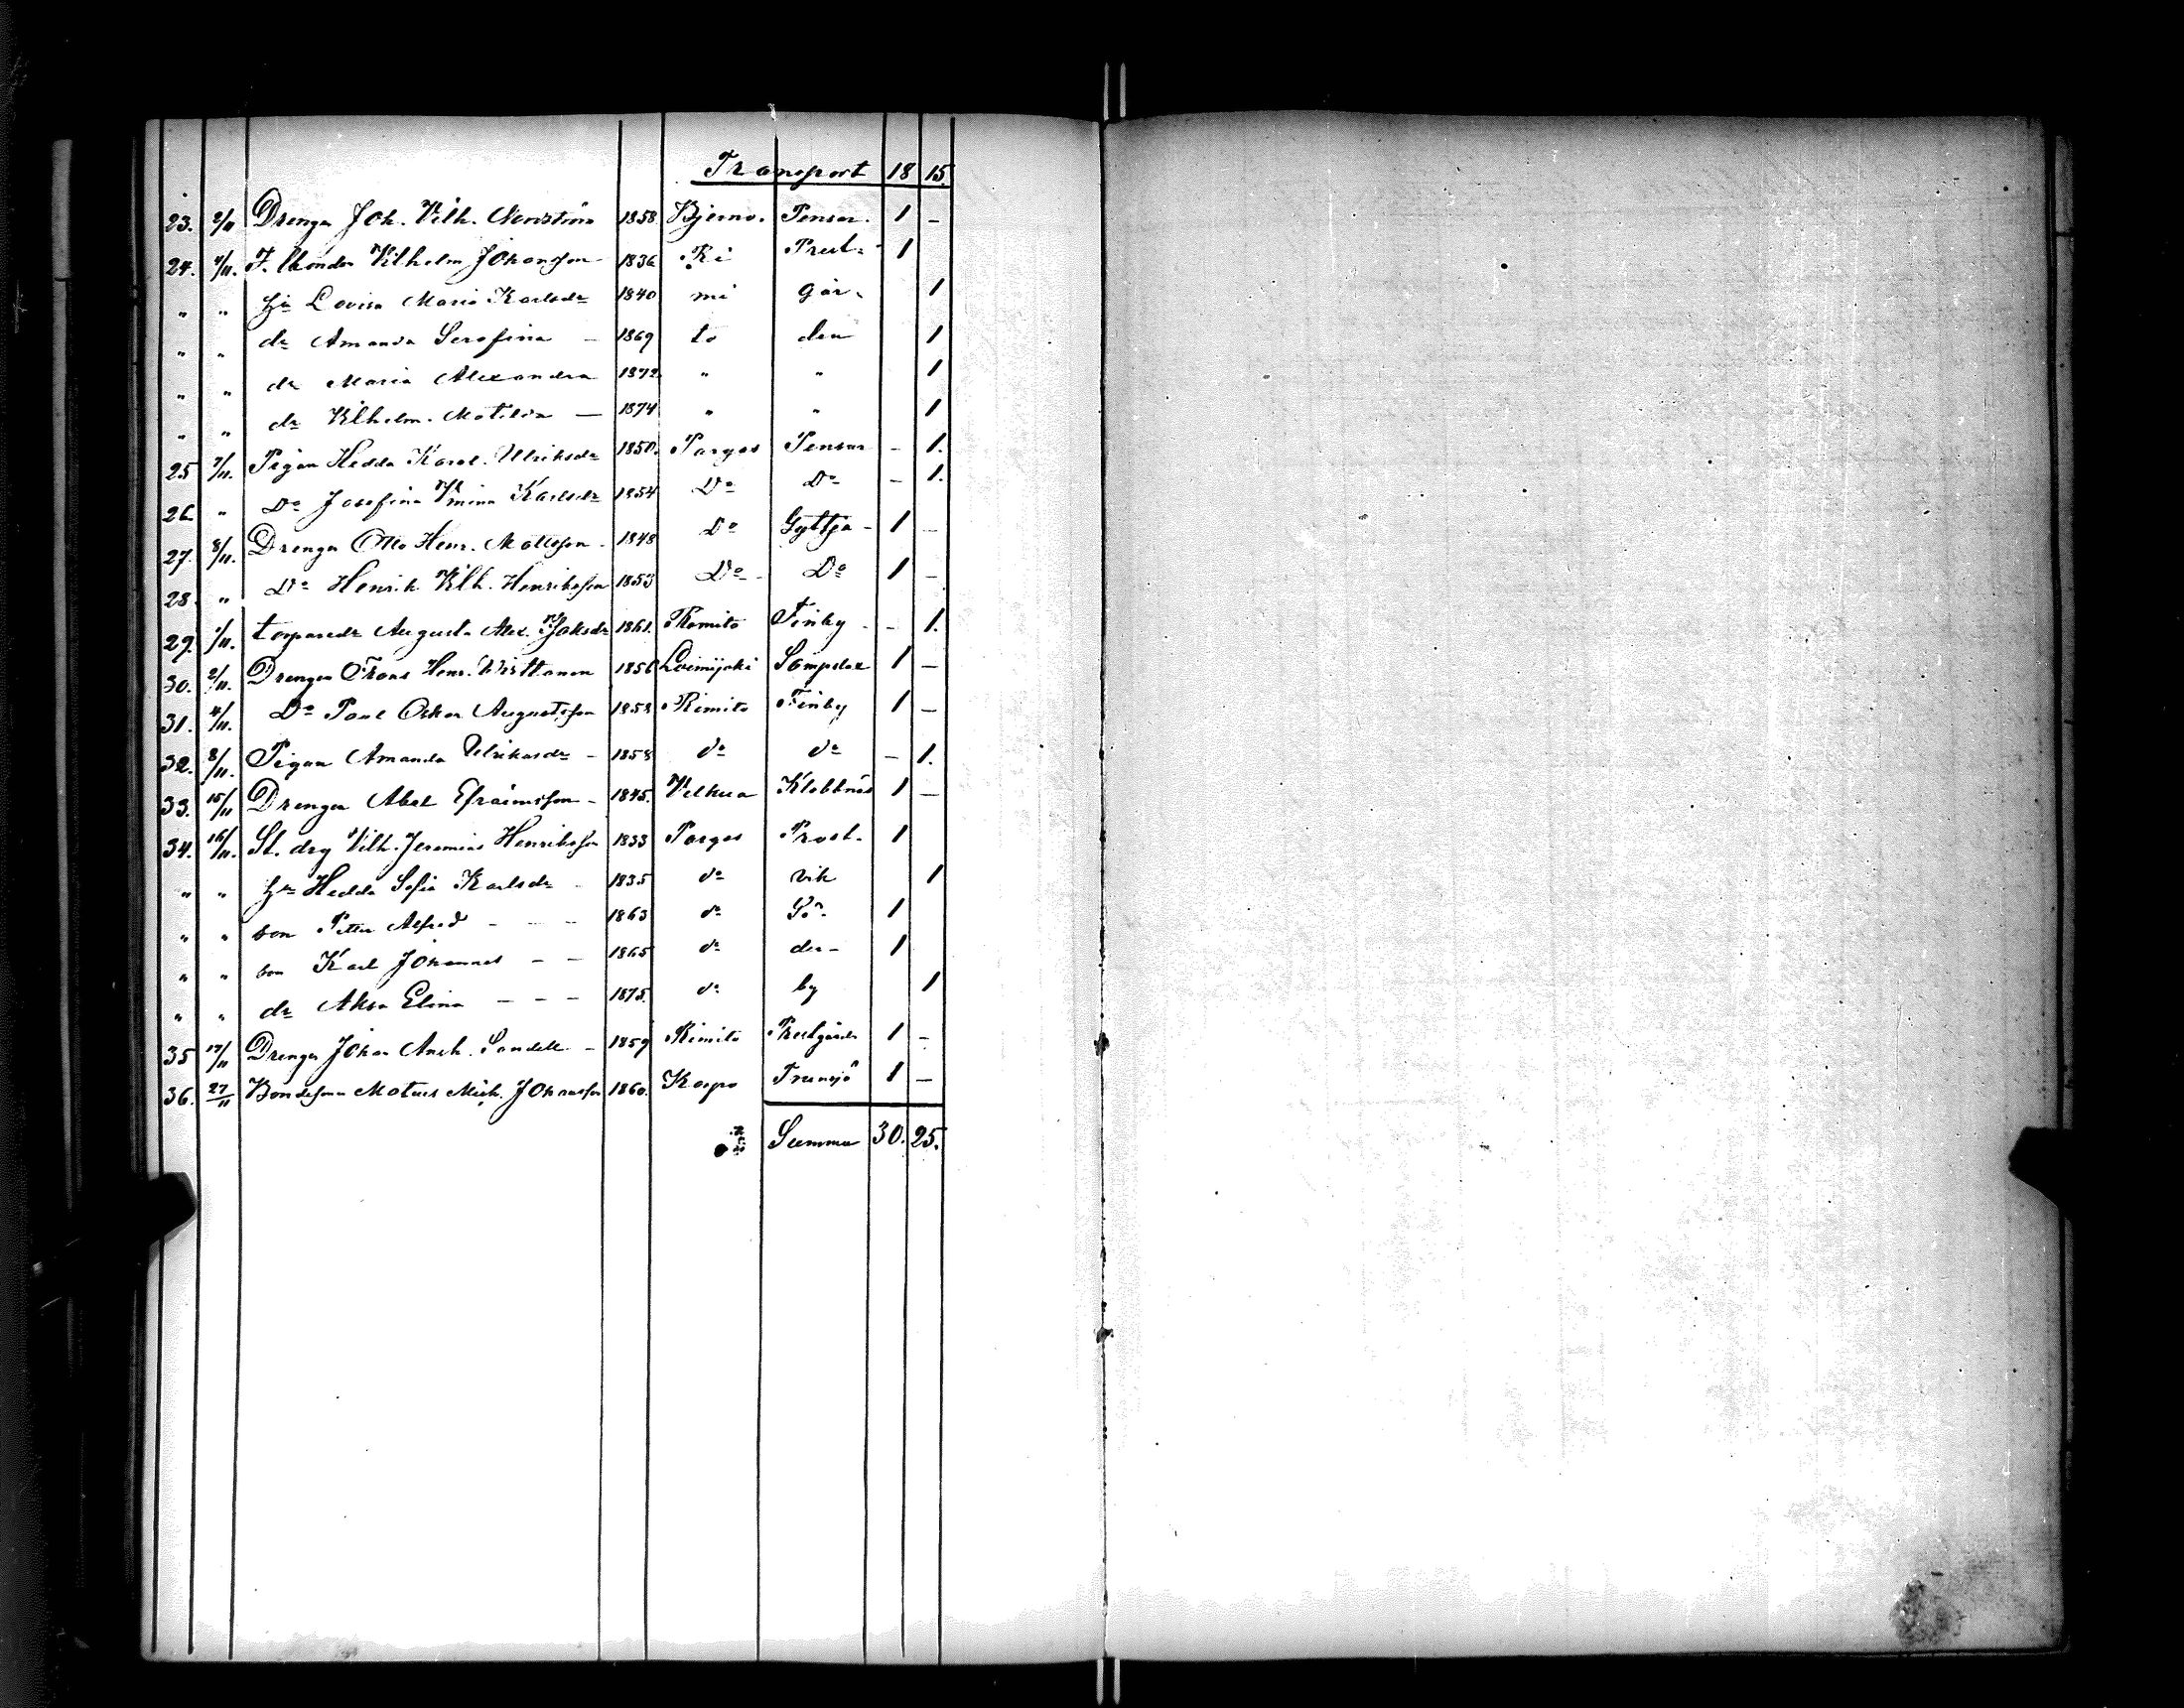 Transport 18 15.
23. 2/11 Drengen Joh. Vilh. Nenström 1858 Bjerno. Pensar. 1 —
24. 4/11. F. bonden Vilhelm Johansson 1836 Ki Prest- 1
" " hu Lovisa Maria Karlsdr 1840 mi går- 1
" " dr Amanda Serafina — 1869 to den 1
" " dr Maria Alexandra 1872 " " 1
" " dr Vilhelm. Matilda — 1874 " " 1
25 7/11. Pigan Hedda Karol. Ulriksdr 1850. Pargas Pensar — 1.
26 " Do Josefina Vmina Karlsdr 1854 Do Do — 1.
27. 8/11. Drengen Otto Henr. Mattsson. 1848 Do Gyttja- 1 —
28. " Do Henrik Vilh. Henriksson 1853 Do Do 1 —
29. 1/11. torparedr Augusta Alex. Isaksdr 1861. Kimito Finby - — 1.
30. 2/11. Drengen Frans Henr. Wirttanen 1856 Loimijoki Sampdal 1 —
31. 4/11. Do Paul Oskar Augustsson 1858 Kimito Finby 1 —
32. 8/11. Pigan Amanda Ulrikasdr — 1858 do do — 1.
33. 15/11 Drengen Abel Efraimsson — 1845. Velkua Klobbnäs 1 —
34. 16/11. St. drg Vilh. Jeremias Henriksson 1833 Pargas Prost- 1
" " hu Hedda Sofia Karlsdr 1835 do vik 1
" " son Petter Alfred — — — 1863 do Sö- 1
" " son Karl Johannes — — 1865 do der- 1
" " dr Alma Elina — — — 1875. do by 1
35 17/11 Drengen Johan Anth. Sandell — 1859 Kimito Prestgården 1 —
36. 27/11 Bondesonen Matias Mich. Johansson 1860. Korpo Trunsjö 1 —
Summa 30. 25.